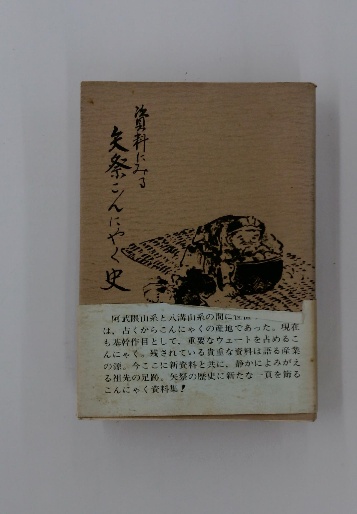 資料にみる
矢祭こんにゃく史
阿武隈山系と八溝山系の間に
は、古くからこんにゃくの産地であった。現在
も基幹作目として、重要なウェートを占めるこ
んにゃく。残されている貴重な資料は語る産業
の源。今ここに新資料と共に、静かによみがえ
る祖先の足跡。矢祭の歴史に新たな一頁を飾る
こんにゃく資料集!